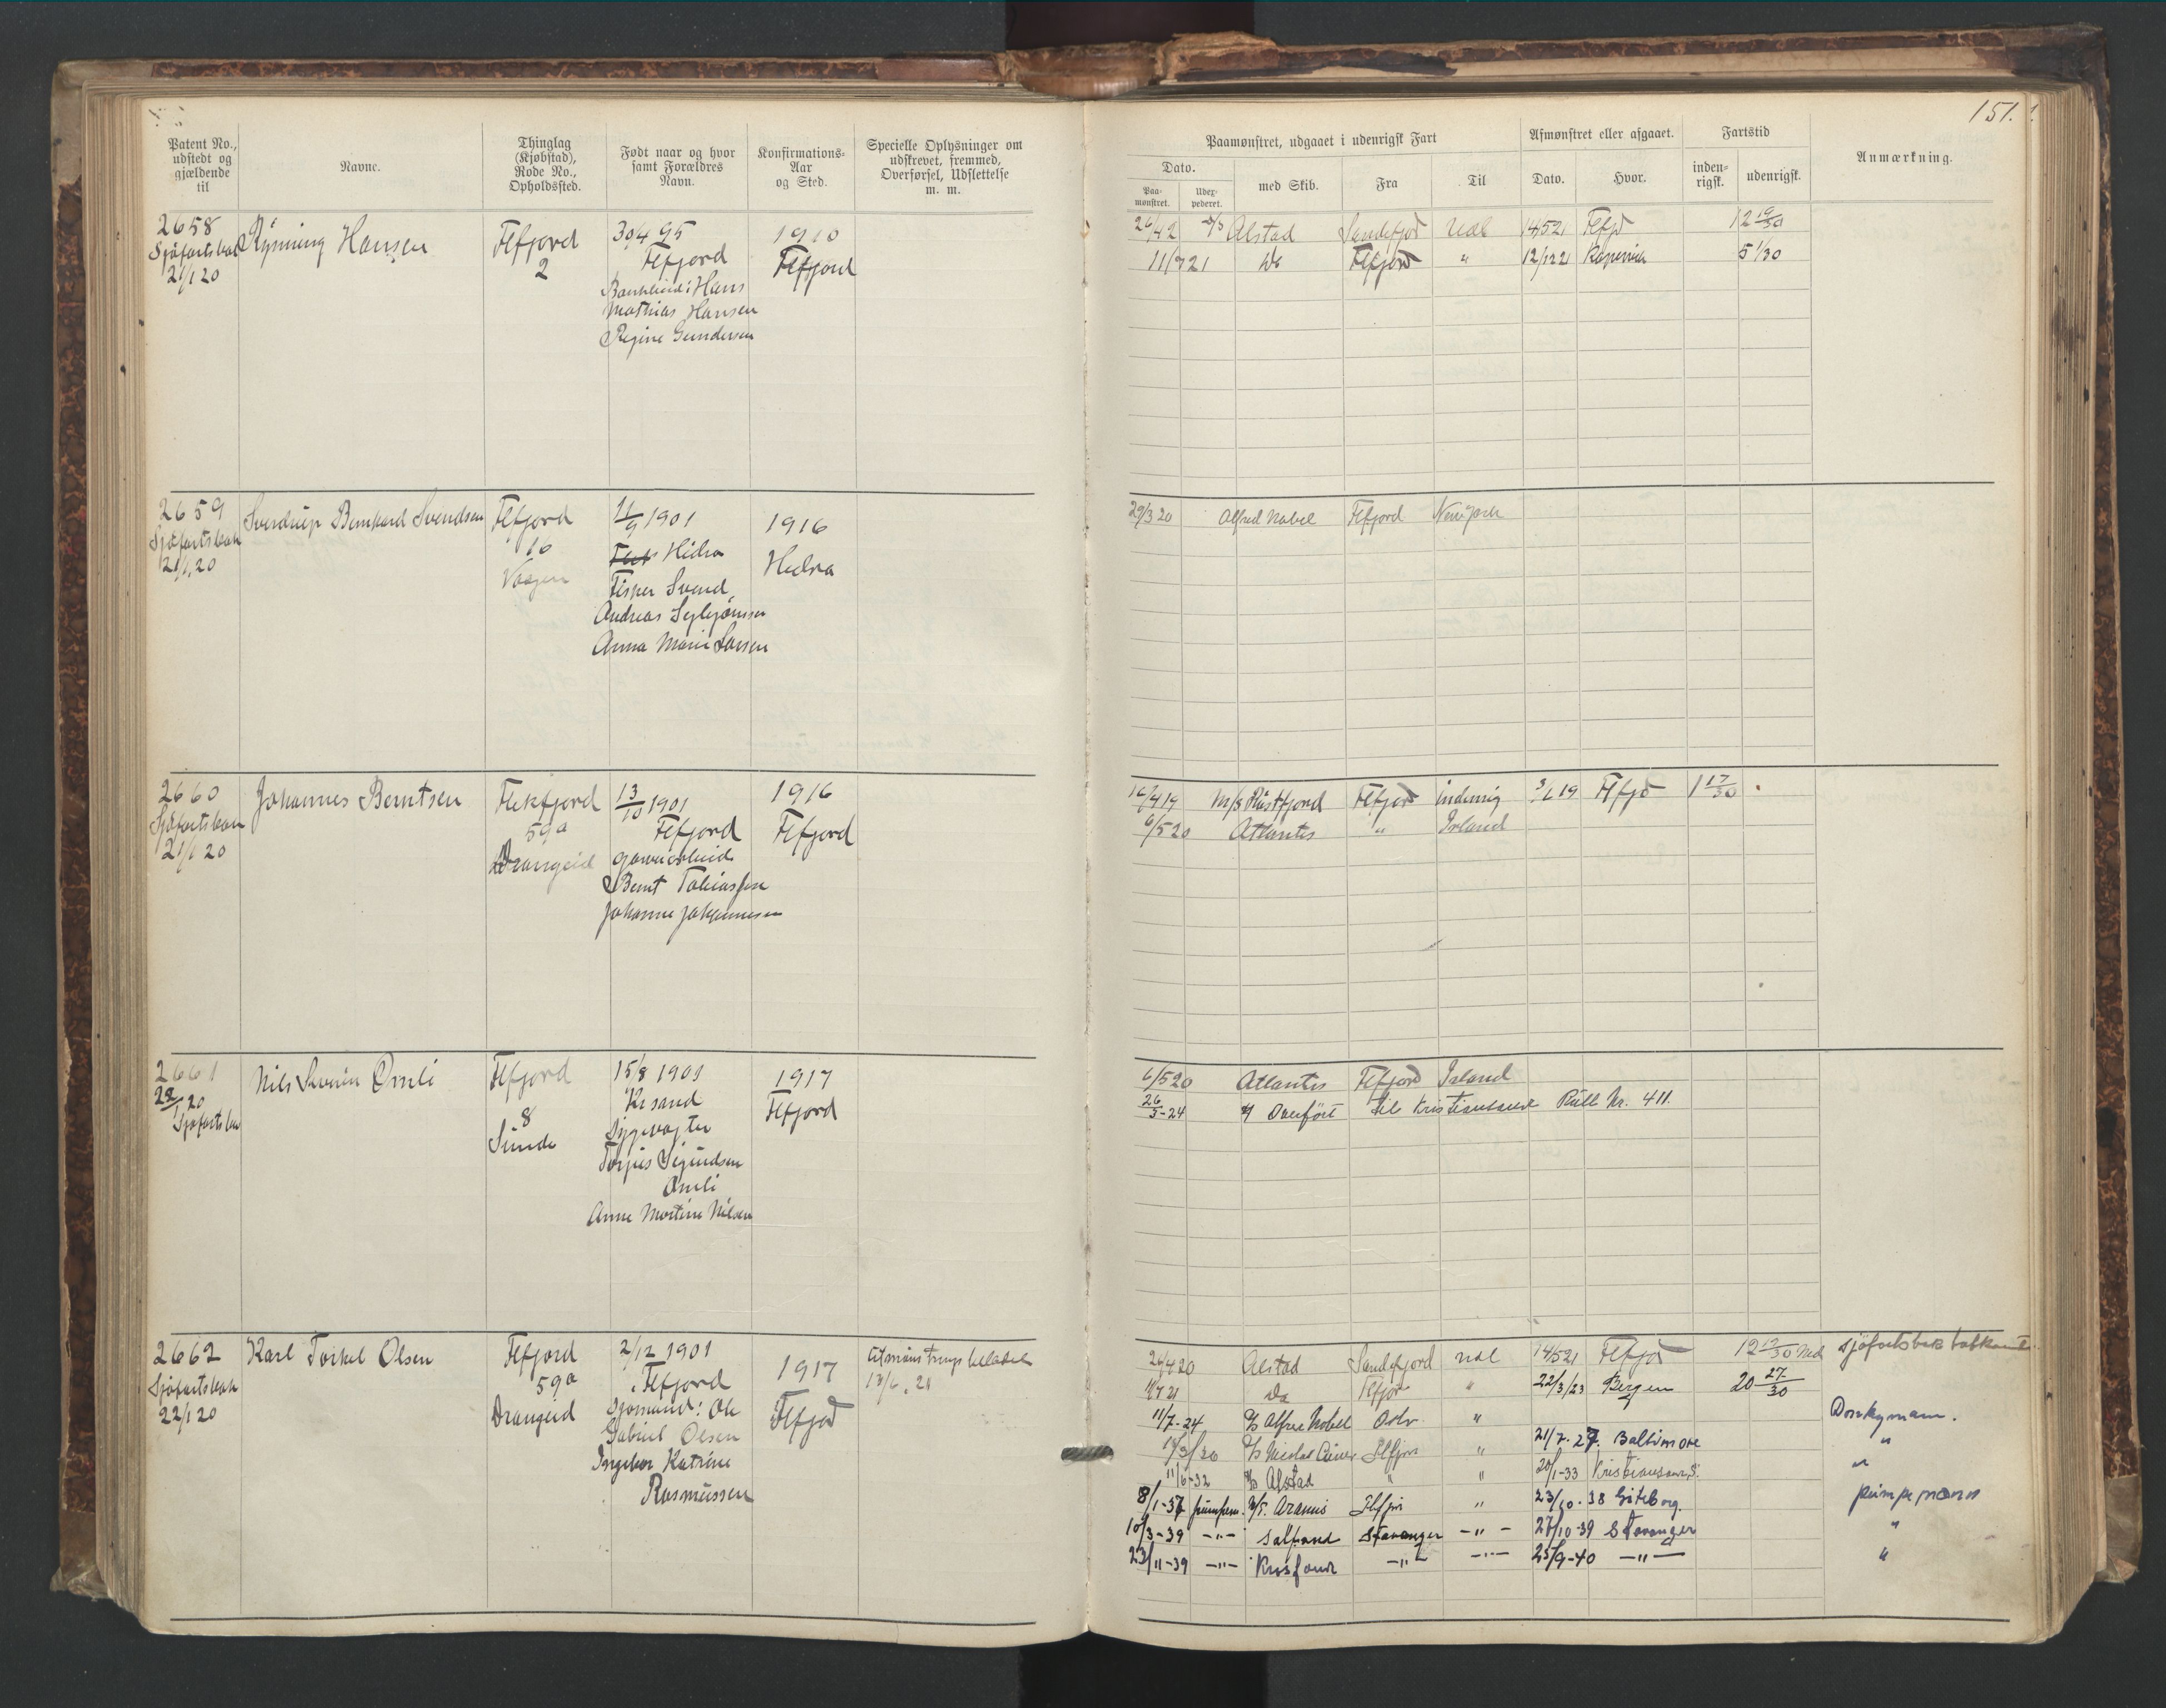 151.
Patent No., udstedt og gjældende til
Navne.
Thinglag (Kjøbstad), Rode No., Opholdssted.
Født naar og hvor samt Forældres Navn.
Konfirmations-Aar og Sted.
Specielle Oplysninger om udskrevet, fremmed, Overførsel, Udslettelse m. m.
Paamønstret, udgaaet i udenrigsk Fart
Dato.
Paa-mønstret.
med Skib.
Fra
Til
Afmønstret eller afgaaet.
Dato.
Hvor.
Fartstid
inden-rigsk.
udenrigsk.
Anmærkning.
2658
Sjøfartsbok
21/1 20
Hansen
Flfjord
2
30/4 95
Flfjord
Hans
Mathias Hansen
Regine Gundersen
1910
Flfjord
Alstad Sandefjord Udl 14/5 21 Flfjd 12 19/30
11/7 21 do Flfjord " 12/1 22 5 1/30
2659
Sjøfartsbok
21/1 20
Sverdrup Bernhard Svendsen
Flfjord
16
Vaagen
11/9 1901
Hidra
Fisker Svend
Andreas
Anna Marie Larsen
1916
Hedra
29/3 20 Alfred Nobel Flfjord Newyork
2660
Sjøfartsbok
21/1 20
Johannes Berntsen
Flekfjord
59a
Drangeid
13/10 1901
Flfjord
Garveriarbeid
Bernt Tobiassen
Johanne Johannesen
1916
Flfjord
16/4 19 M/S Flfjord indenrig 3/6 19 Flfjd 1 17/30
6/5 20 Atlantis " Island
2661
28/1 20
Sjøfartsbok
Nils Severin Omli
Flfjord
8
Sunde
15/8 1901
Kr.sand
Sygevogter
Torjus Sigundsen
Omli
Anne Martine Nilsen
1917
Flfjord
6/5 20 Atlantis Flfjord Island
26/5-24 Overført til Kristiansand Rull Nr. 411.
2662
Sjøfartsbok
22/1 20
Karl Torkel Olsen
Flfjord
59a
Drangeid
2/12 1901
Flfjord
Sjømand: Ole
Gabriel Olsen
Ingebor Katrine
Rasmussen
1917
Flfjord
13/6 21
26/4 20 Alstad Sandefjord Udl 14/5 21 Flfjd 12 19/30 Sjøfartsbok
11/7 21 Do Flfjor " 22/3/23 Bergen 20 27/30
11/7-24 Alfred Nobel Oslo " Donkymann.
Flfjor " 21/7-27. Baltimore "
11/6-32 Alstad " " 20/1-33 Kristiansand S. "
8/1-37 pumpem. M/S. Aramis Flfjor " 23/10-38 Göteborg. pumpemann
10/3-39 -"- Solsand Stavanger -"- 27/10-39 Stavanger "
23/11-39 -"- Krosfonn -"- -"- 25/9-40 -"- "